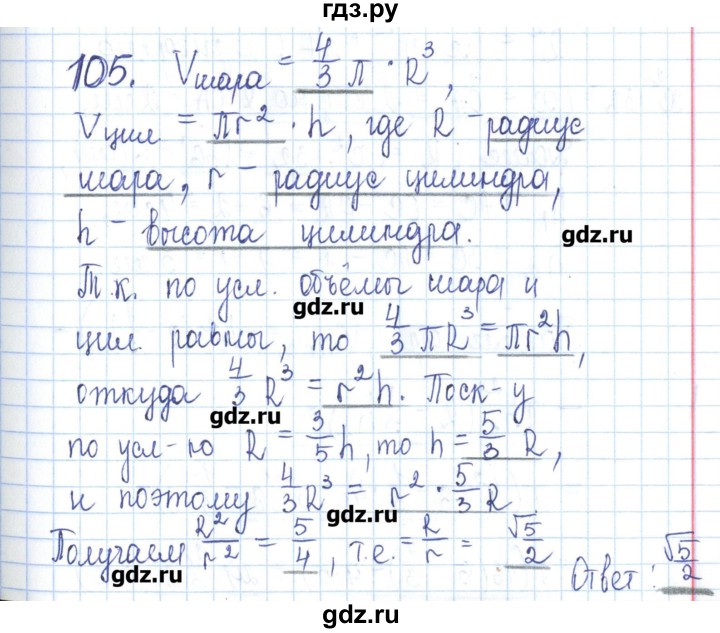 гдз.ру
105. Vшара = 4/3 π · R³,
Vцил = πr² · h, где R – радиус
шара, r – радиус цилиндра,
h – высота цилиндра.
gdz.ru
Т.к. по усл. объёмы шара и
gdz.ru gdz.ru
цил. равны, то 4/3 πR³ = πr²h,
откуда 4/3 R³ = r²h. Поск-у
gdz.ru
по усл-ю R = 3/5 h, то h = 5/3 R,
и поэтому 4/3 R³ = r² · 5/3 R
gdz.ru
Получаем R²/r² = 5/4, т.е. = R/r = √5/2
Ответ: √5/2
gdz.ru gdz.ru
gdz.ru